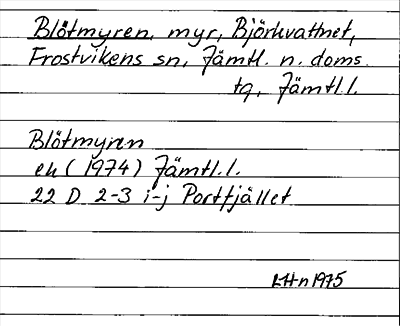 Blötmyren, myr, Björkvattnet,
Frostvikens sn, Jämtl. n. doms.
tg, Jämtl.l.
Blötmyren
ek (1974) Jämtl.l.
22 D 2-3 i-j Portfjället
LHn 1975